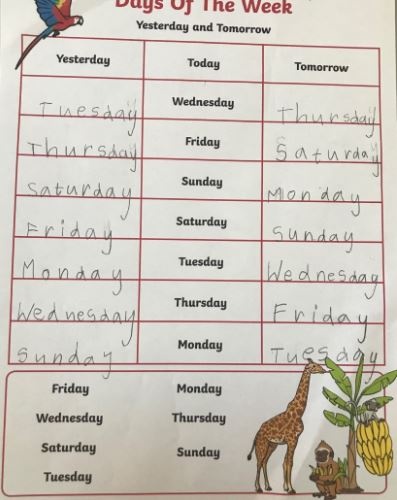 Days Of The Week
Yesterday and Tomorrow
Yesterday Today Tomorrow
Tuesday Wednesday Thursday
Thursday Friday Saturday
Saturday Sunday Monday
Friday Saturday Sunday
Monday Tuesday Wednesday
Wednesday Thursday Friday
Sunday Monday Tuesday
Friday Monday
Wednesday Thursday
Saturday Sunday
Tuesday